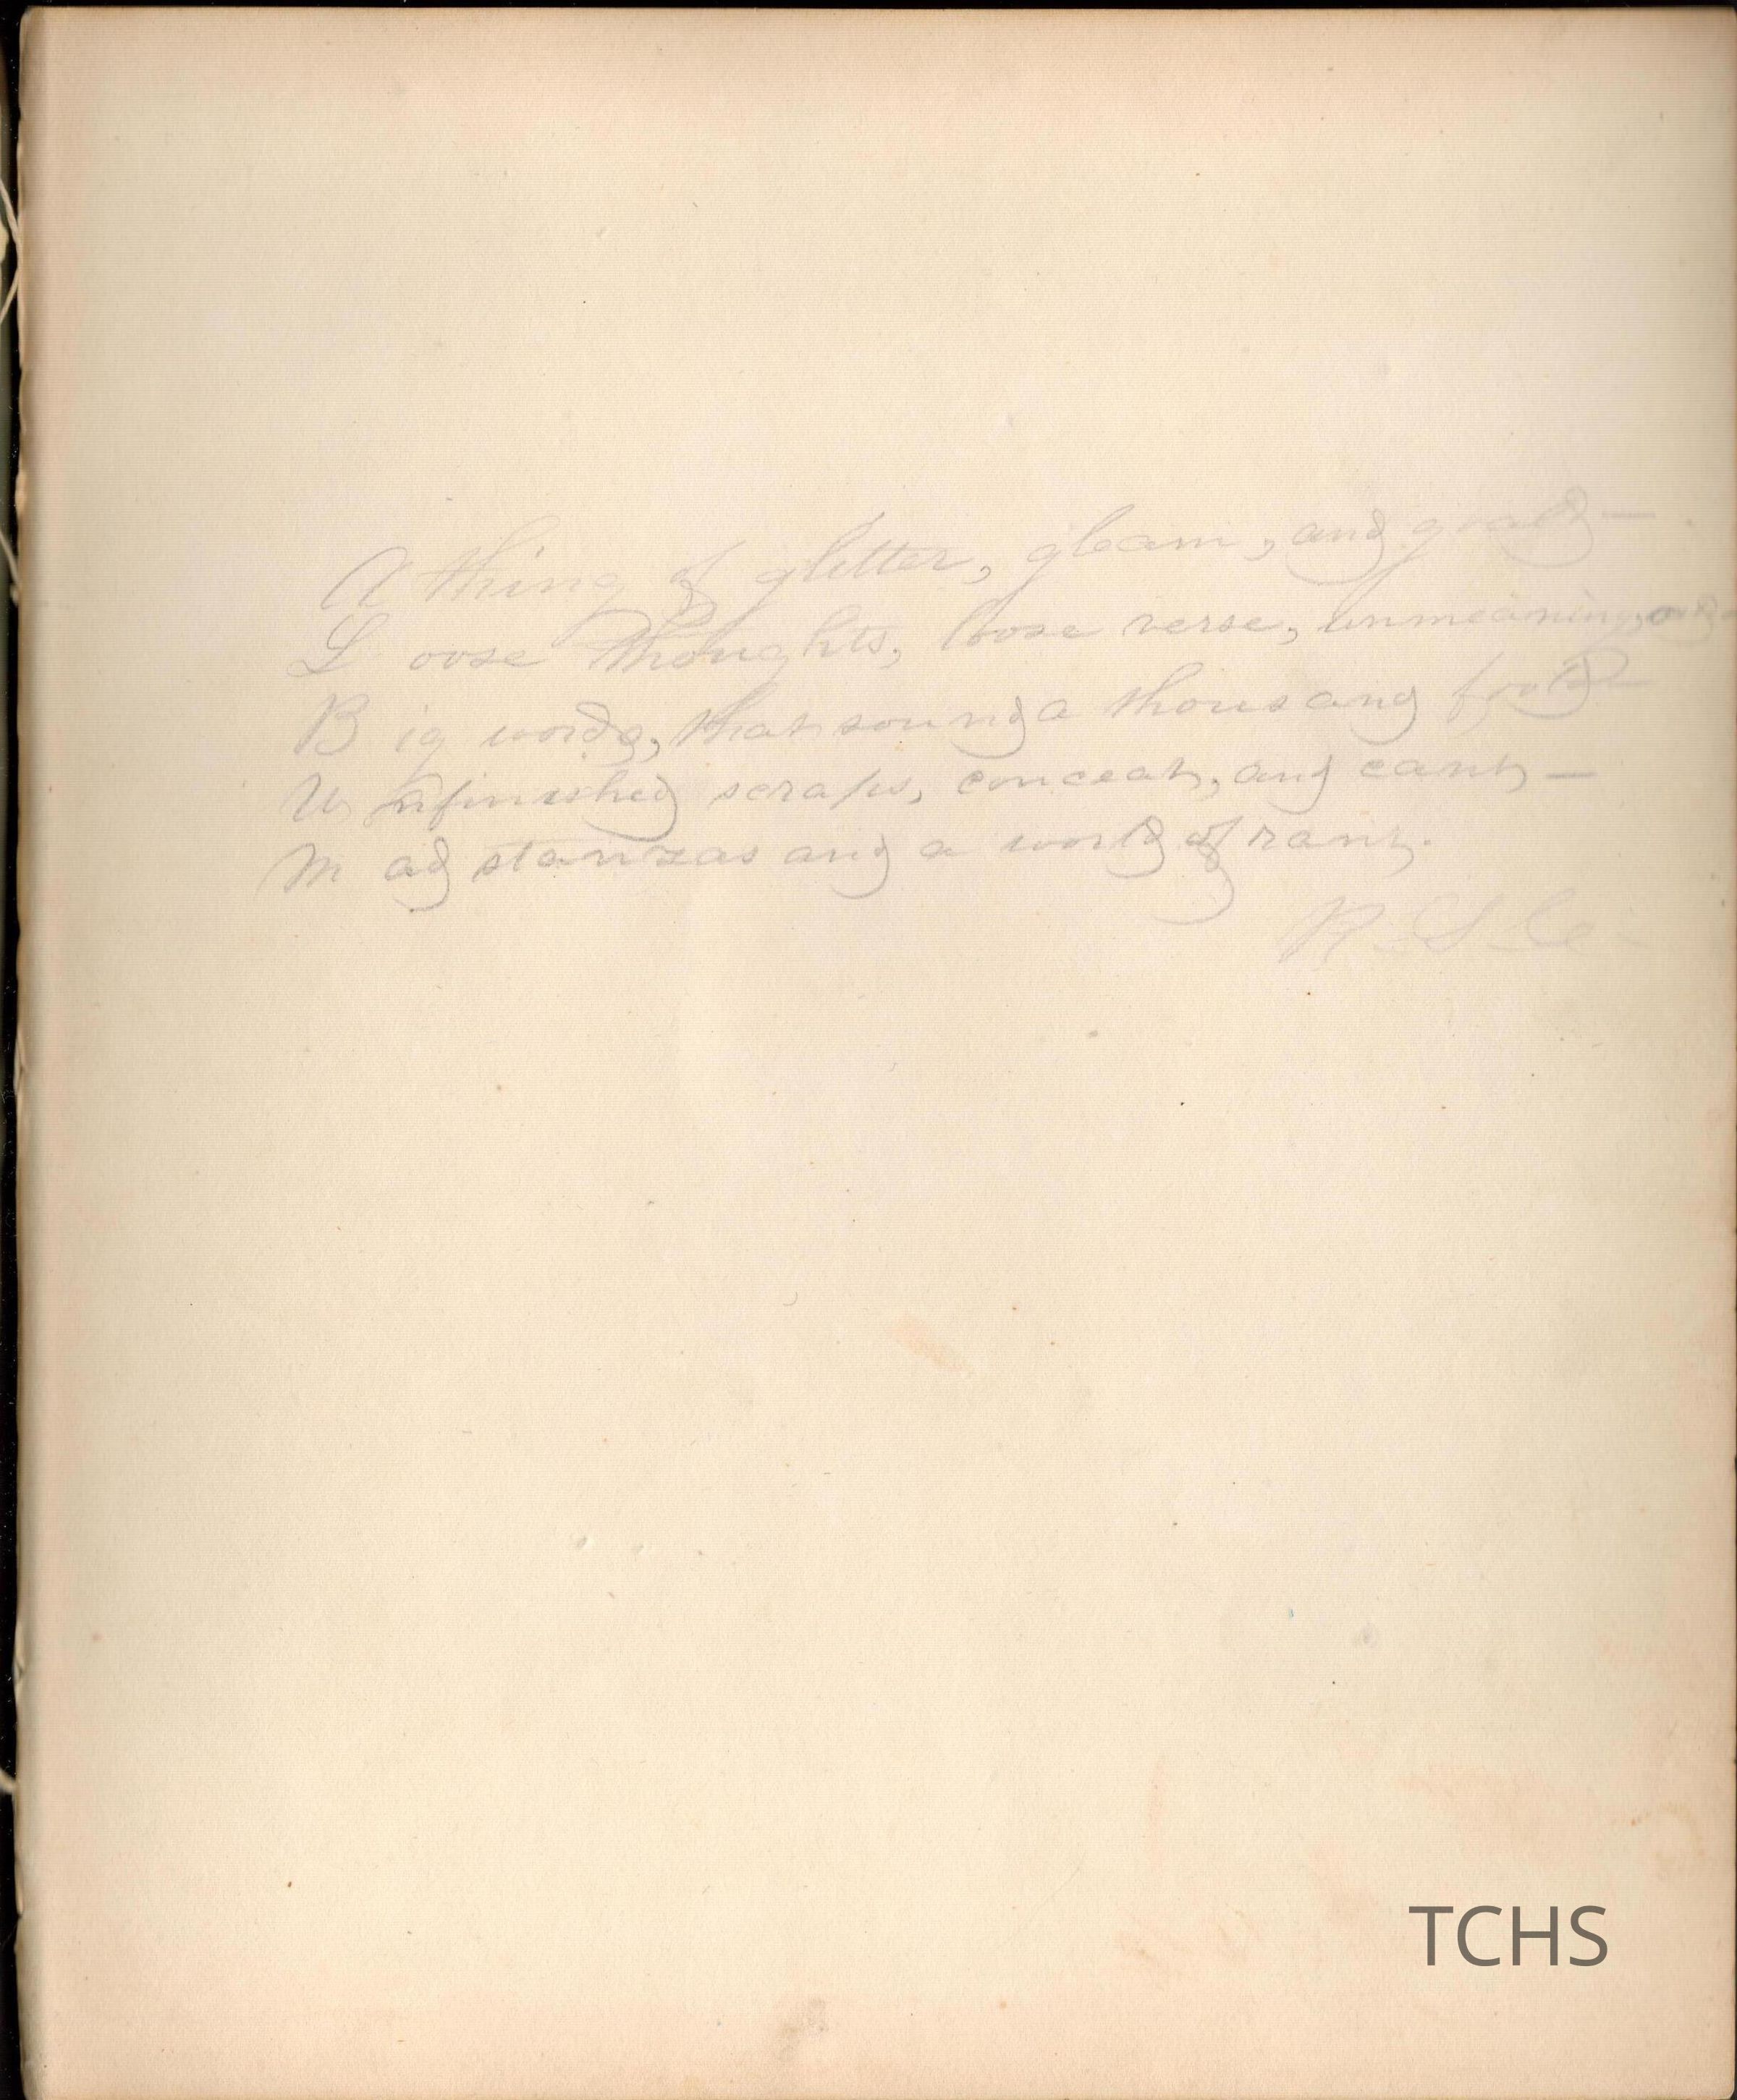 A thing of glitter, gleam, and gold —
L oose thoughts, loose verse, unmeaning, old —
B ig words, that sound a thousand fold —
U nfinished scraps, conceit, and cant —
M ad stanzas and a world of rant.
TCHS